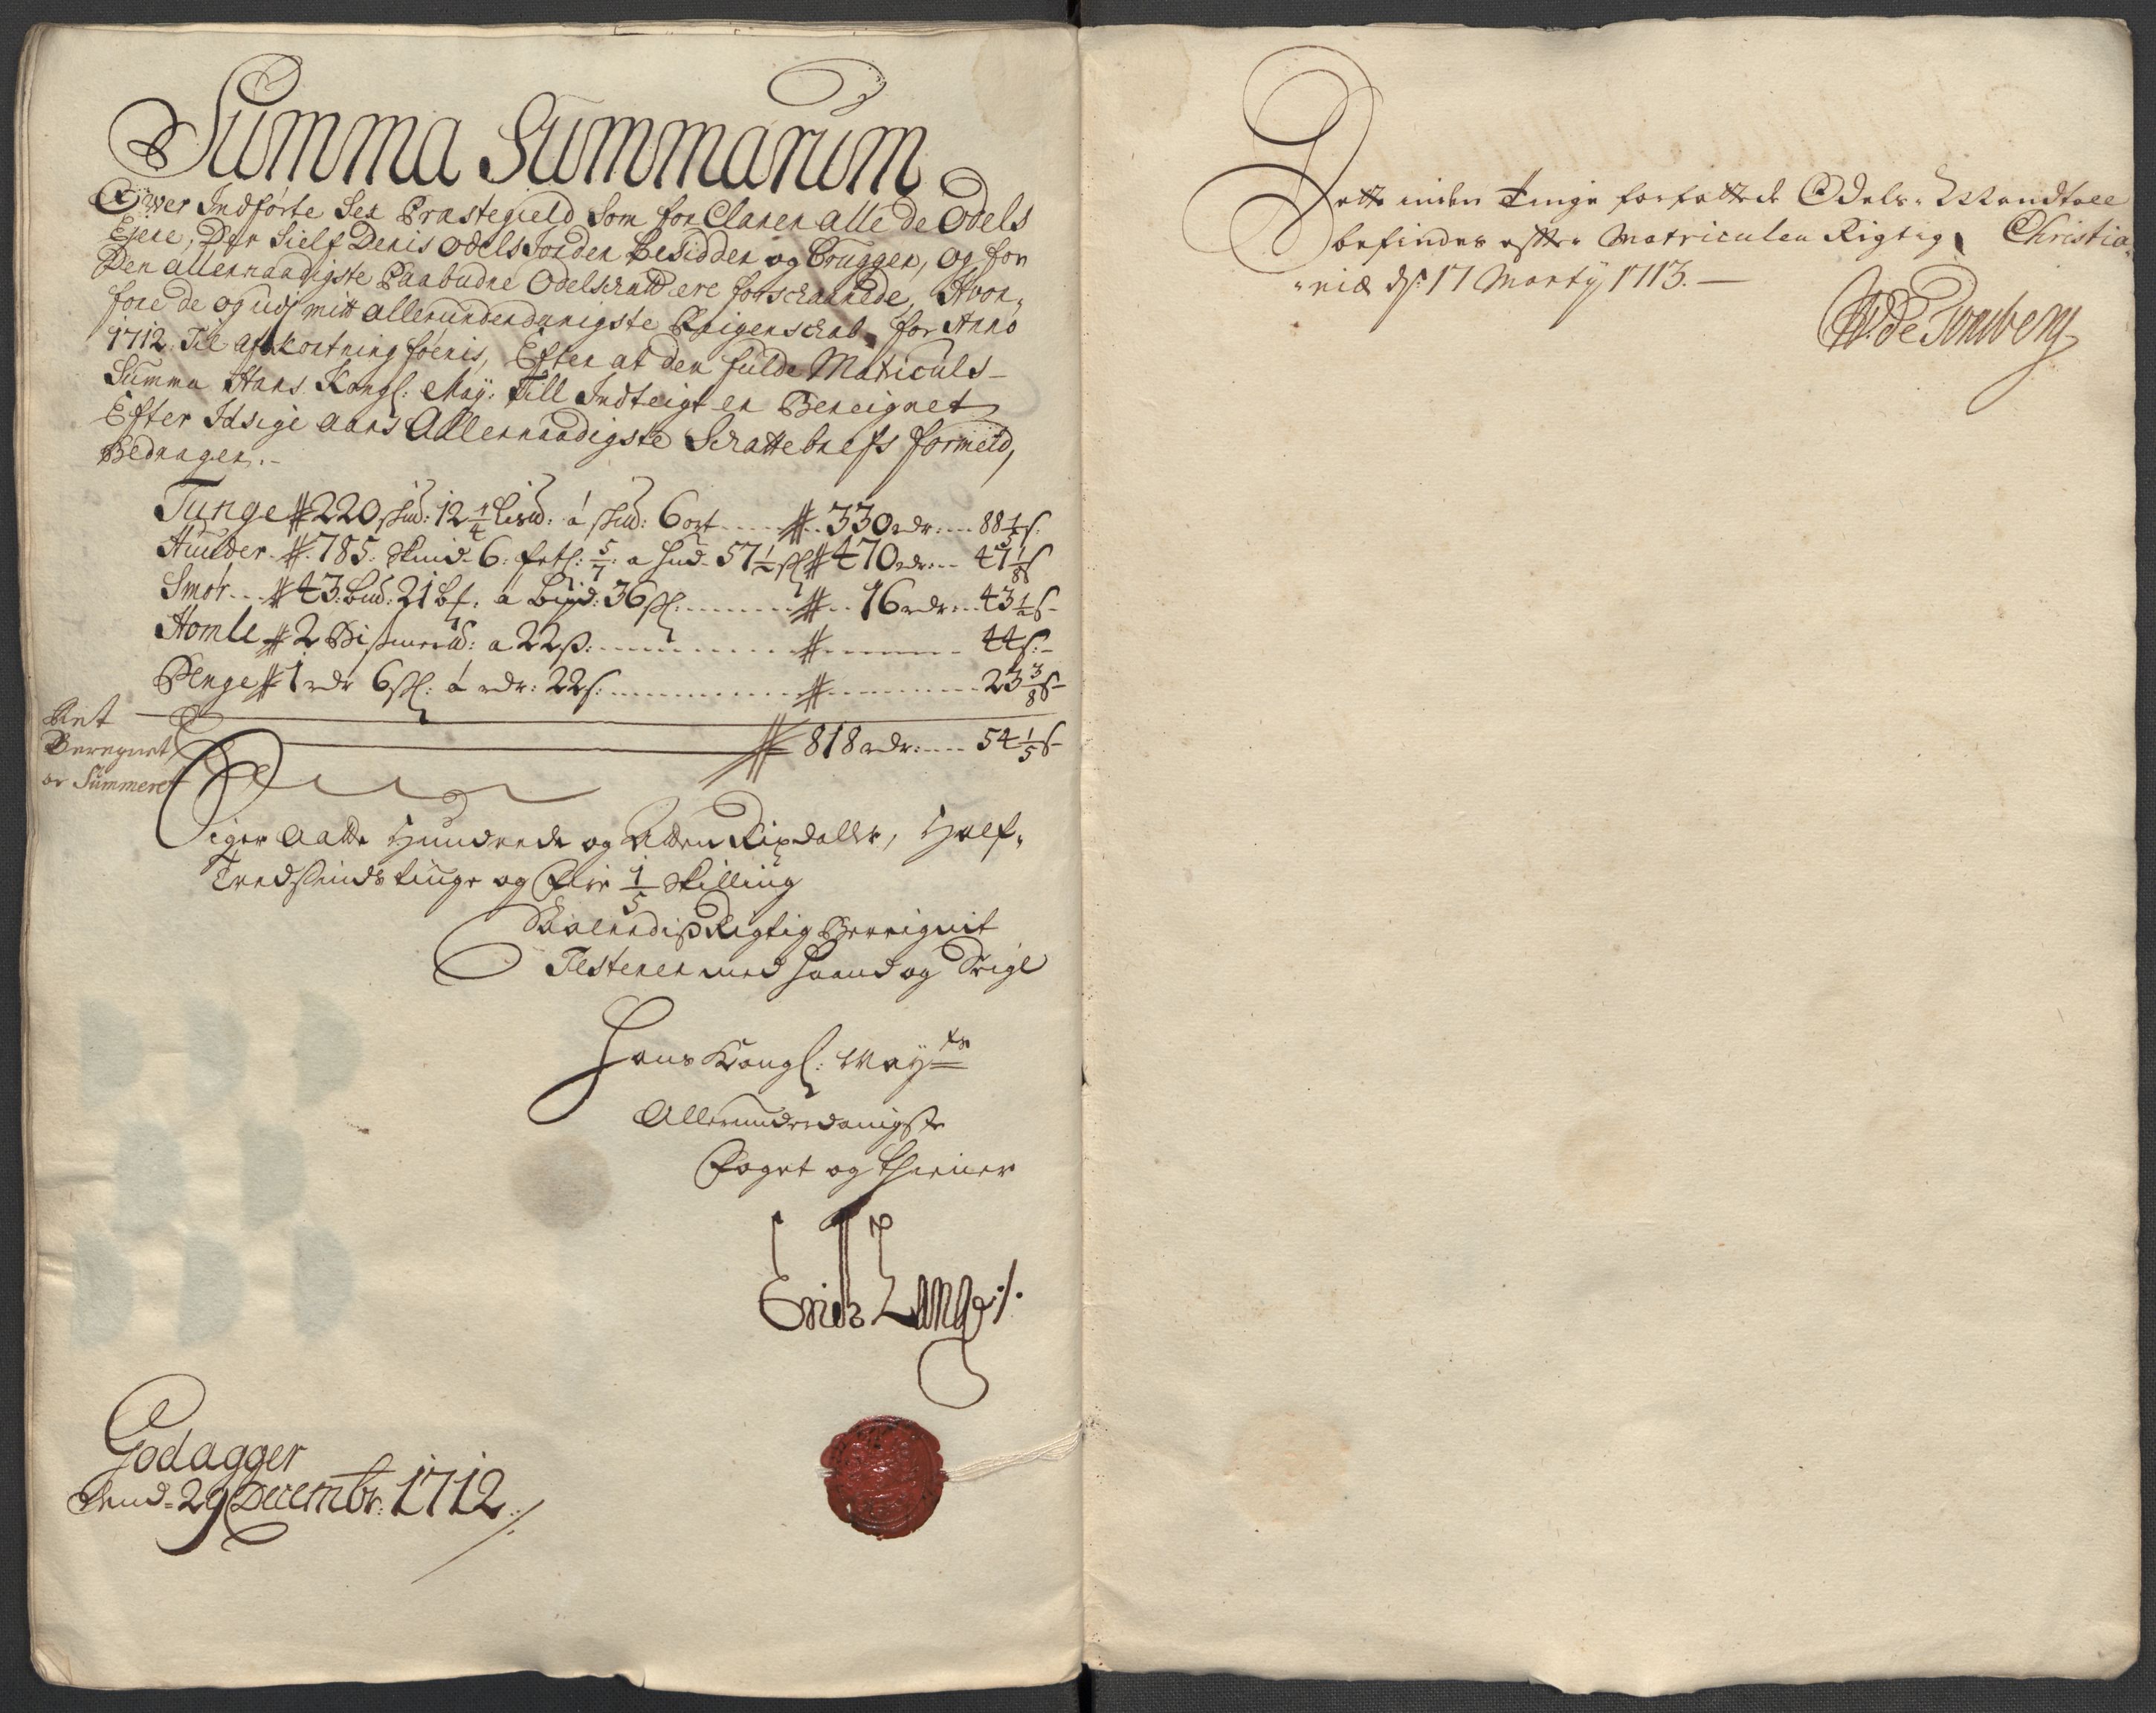 Summa Summarum
Ower Indförte Sex Præstegield Som forClarer alle de Odels
Ejere, Der Sielf Deris Odels Jorder besidder og Brugger, og for
Den allernaadigste Paabudne Odelschatt ere forschaanede, Hvor-
fore de og udj mitt allerunderdanigste Reigenschab for Anno
1712. Til afkortning föeris, Efter at den fulde Matriculs
Summa Hans Kongl: May: till Indteigt er Bereignet
Efter Idsige aars Allernaadigste Schattebrefs formeld,
Bedrager.-
Tunge # 220 skud: 12 1/4 lisud: á skud: 6 ort # 330 rdr: 88 1/2 s:
Huuder # 785 Skind 6: á hud 57 1/2 sh # 470 rdr: 41 1/8 s
Smör # 43: bud: 21 á bud: 36 sh: # 16 rdr: 43 1/2 s
Homle # 2 Bismerud: a 22 s: # 44 s:
Penge # 1 rdr 6 sh: á rdr: 22 s: # 23 3/8 s
Ret
Beregnet
oc Summeret
# 818 rdr: 54 1/5 s
Siger Aatte Hundrede og Atten Rixdaller, Half-
Tredsindstiuge og Fire 1/5 Skilling
Saaledis Rigtig Bereignit
Testerer med Haand og Seigl
Hans Kongl: Mayts
Allerunderdanigste
Foget og thiener
Erich Lange
Godagger
Dend 29 Decembr: 1712
Dette inden Tinge forfattede Odels-Mandtall
befindes efter Matriculen Rigtig, Christia-
niæ ds: 17 Martij 1713.